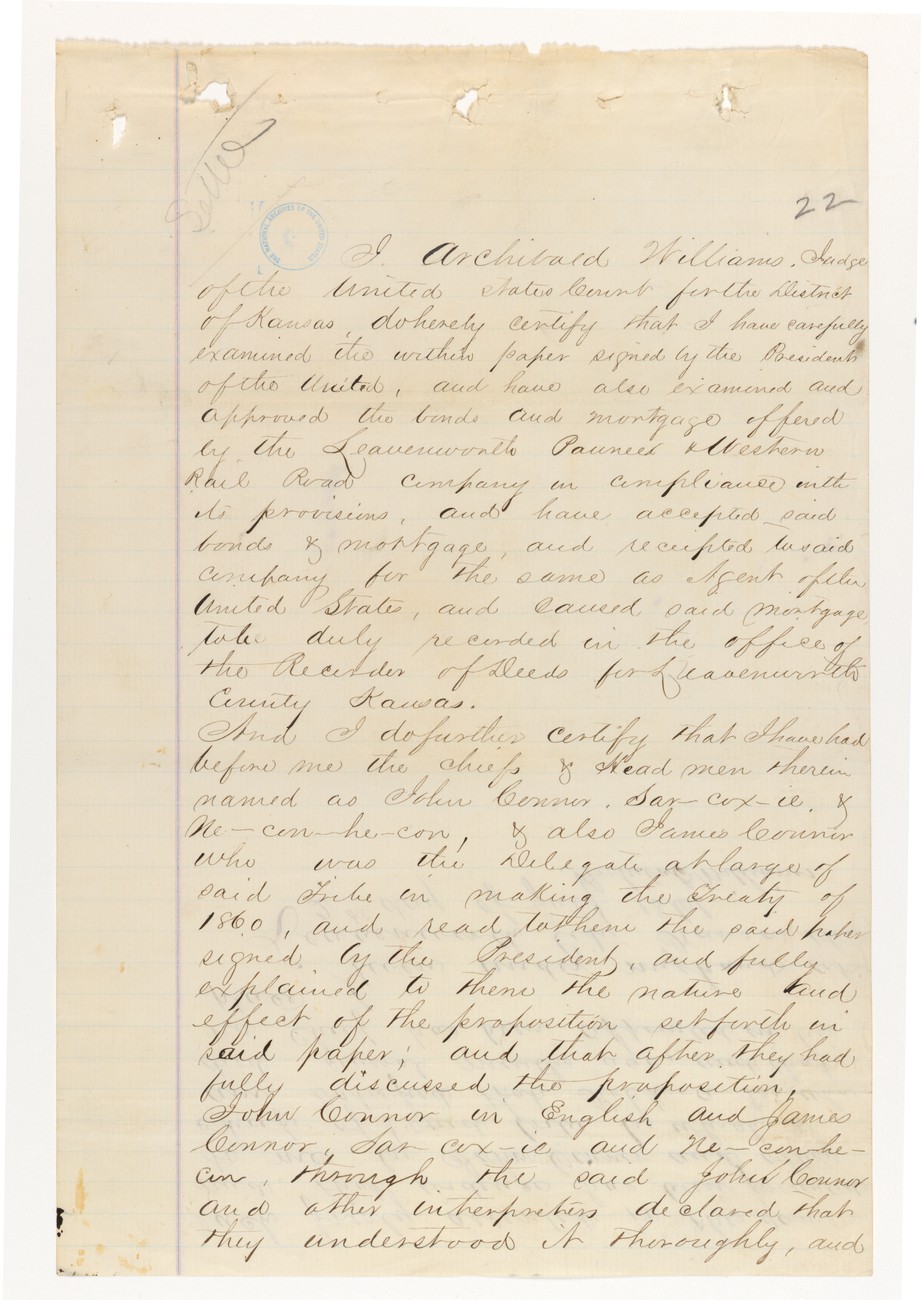 22
THE NATIONAL ARCHIVES OF THE UNITED STATES
I. Archibald Williams. Judge
of the United States Court for the District
of Kansas, do hereby certify that I have carefully
examined the within paper signed by the President
of the United, and have also examined and
approved the bonds and mortgage offered
by the Leavenworth Pawnee & Western
Rail Road company in compliance with
its provisions, and have accepted said
bonds & mortgage, and receipted to said
company for the same as Agent of the
United States, and caused said mortgage
to be duly recorded in the office of
the Recorder of Deeds for Leavenworth
County Kansas.
And I do further certify that I have had
before me the chiefs & Head men therein
named as John Connor. Sar-cox-ie. &
Ne-con-he-con, & also James Connor
who was the Delegate at large of
said Tribe in making the Treaty of
1860, and read to them the said paper
signed by the President, and fully
explained to them the nature and
effect of the proposition set forth in
said paper; and that after they had
fully discussed the proposition,
John Connor in English and James
Connor, Sar-cox-ie and Ne-con-he-
con, through the said John Connor
and other interpreters declared that
they understood it thoroughly, and